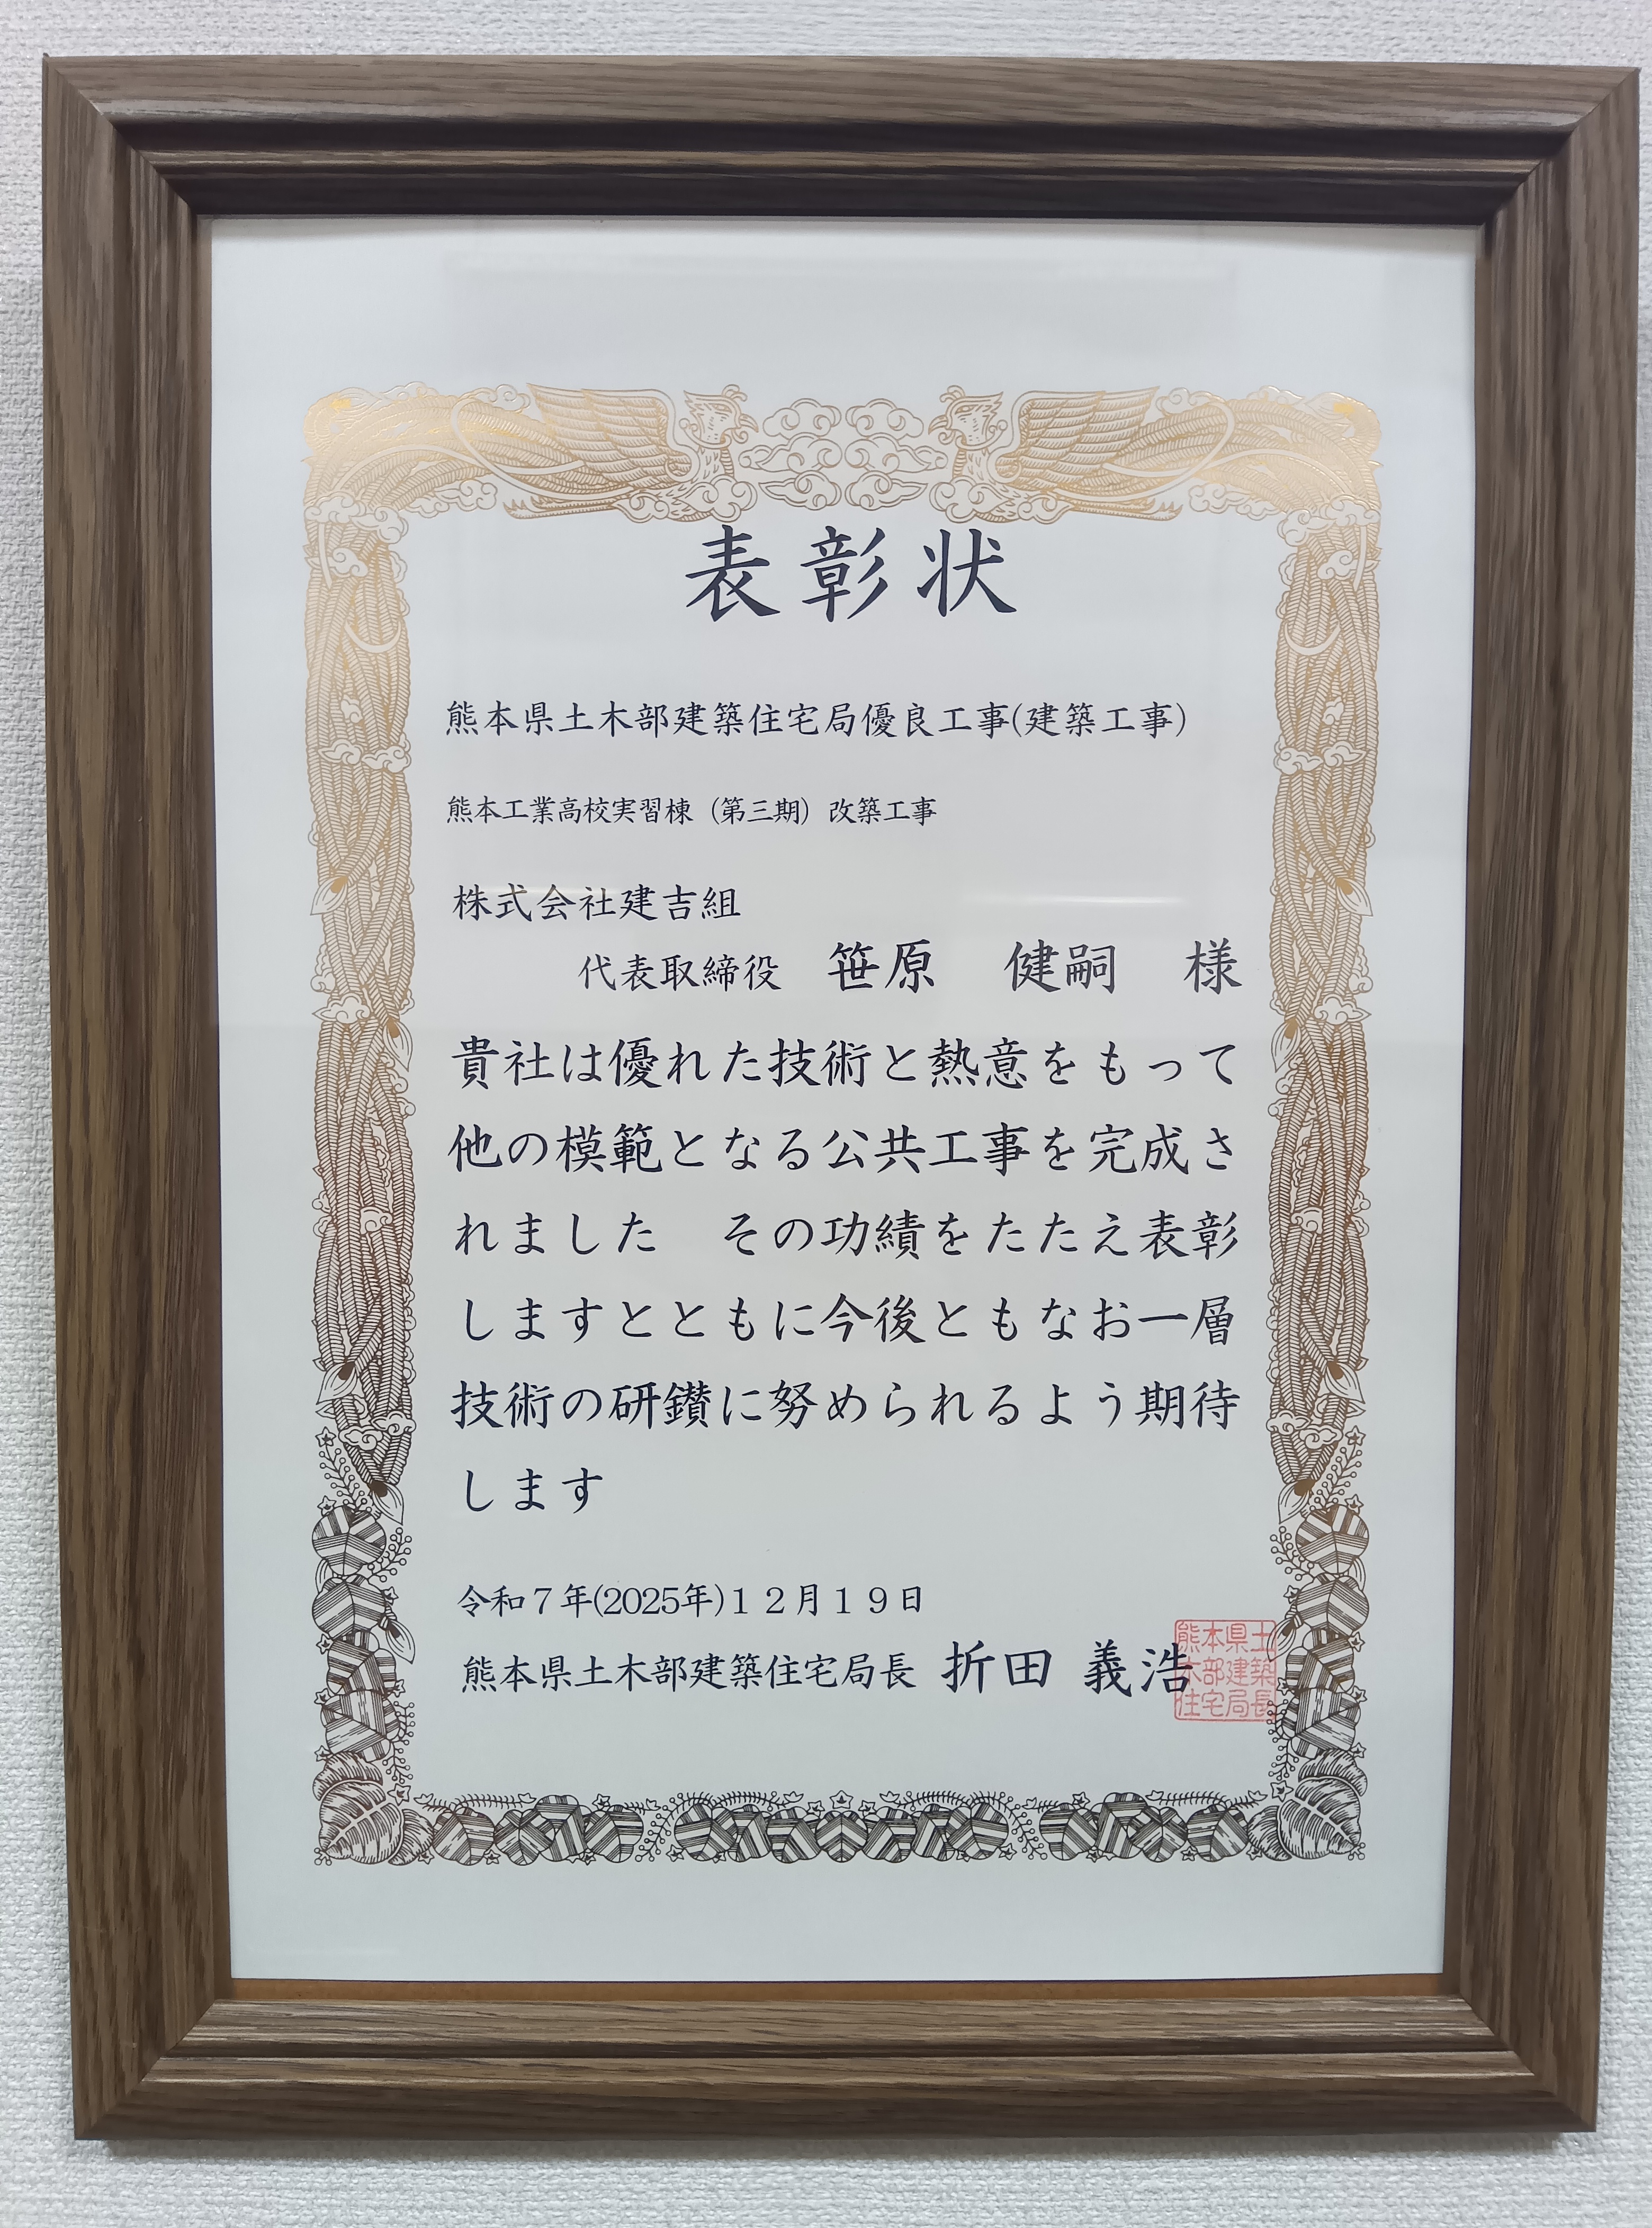 表彰状
熊本県土木部建築住宅局優良工事(建築工事)
熊本工業高校実習棟（第三期）改築工事
株式会社建吉組
代表取締役　笹原　健嗣　様
貴社は優れた技術と熱意をもって
他の模範となる公共工事を完成さ
れました　その功績をたたえ表彰
しますとともに今後ともなお一層
技術の研鑚に努められるよう期待
します
令和７年(2025年)１２月１９日
熊本県土木部建築住宅局長 折田 義浩
熊本県土
木部建築
住宅局長